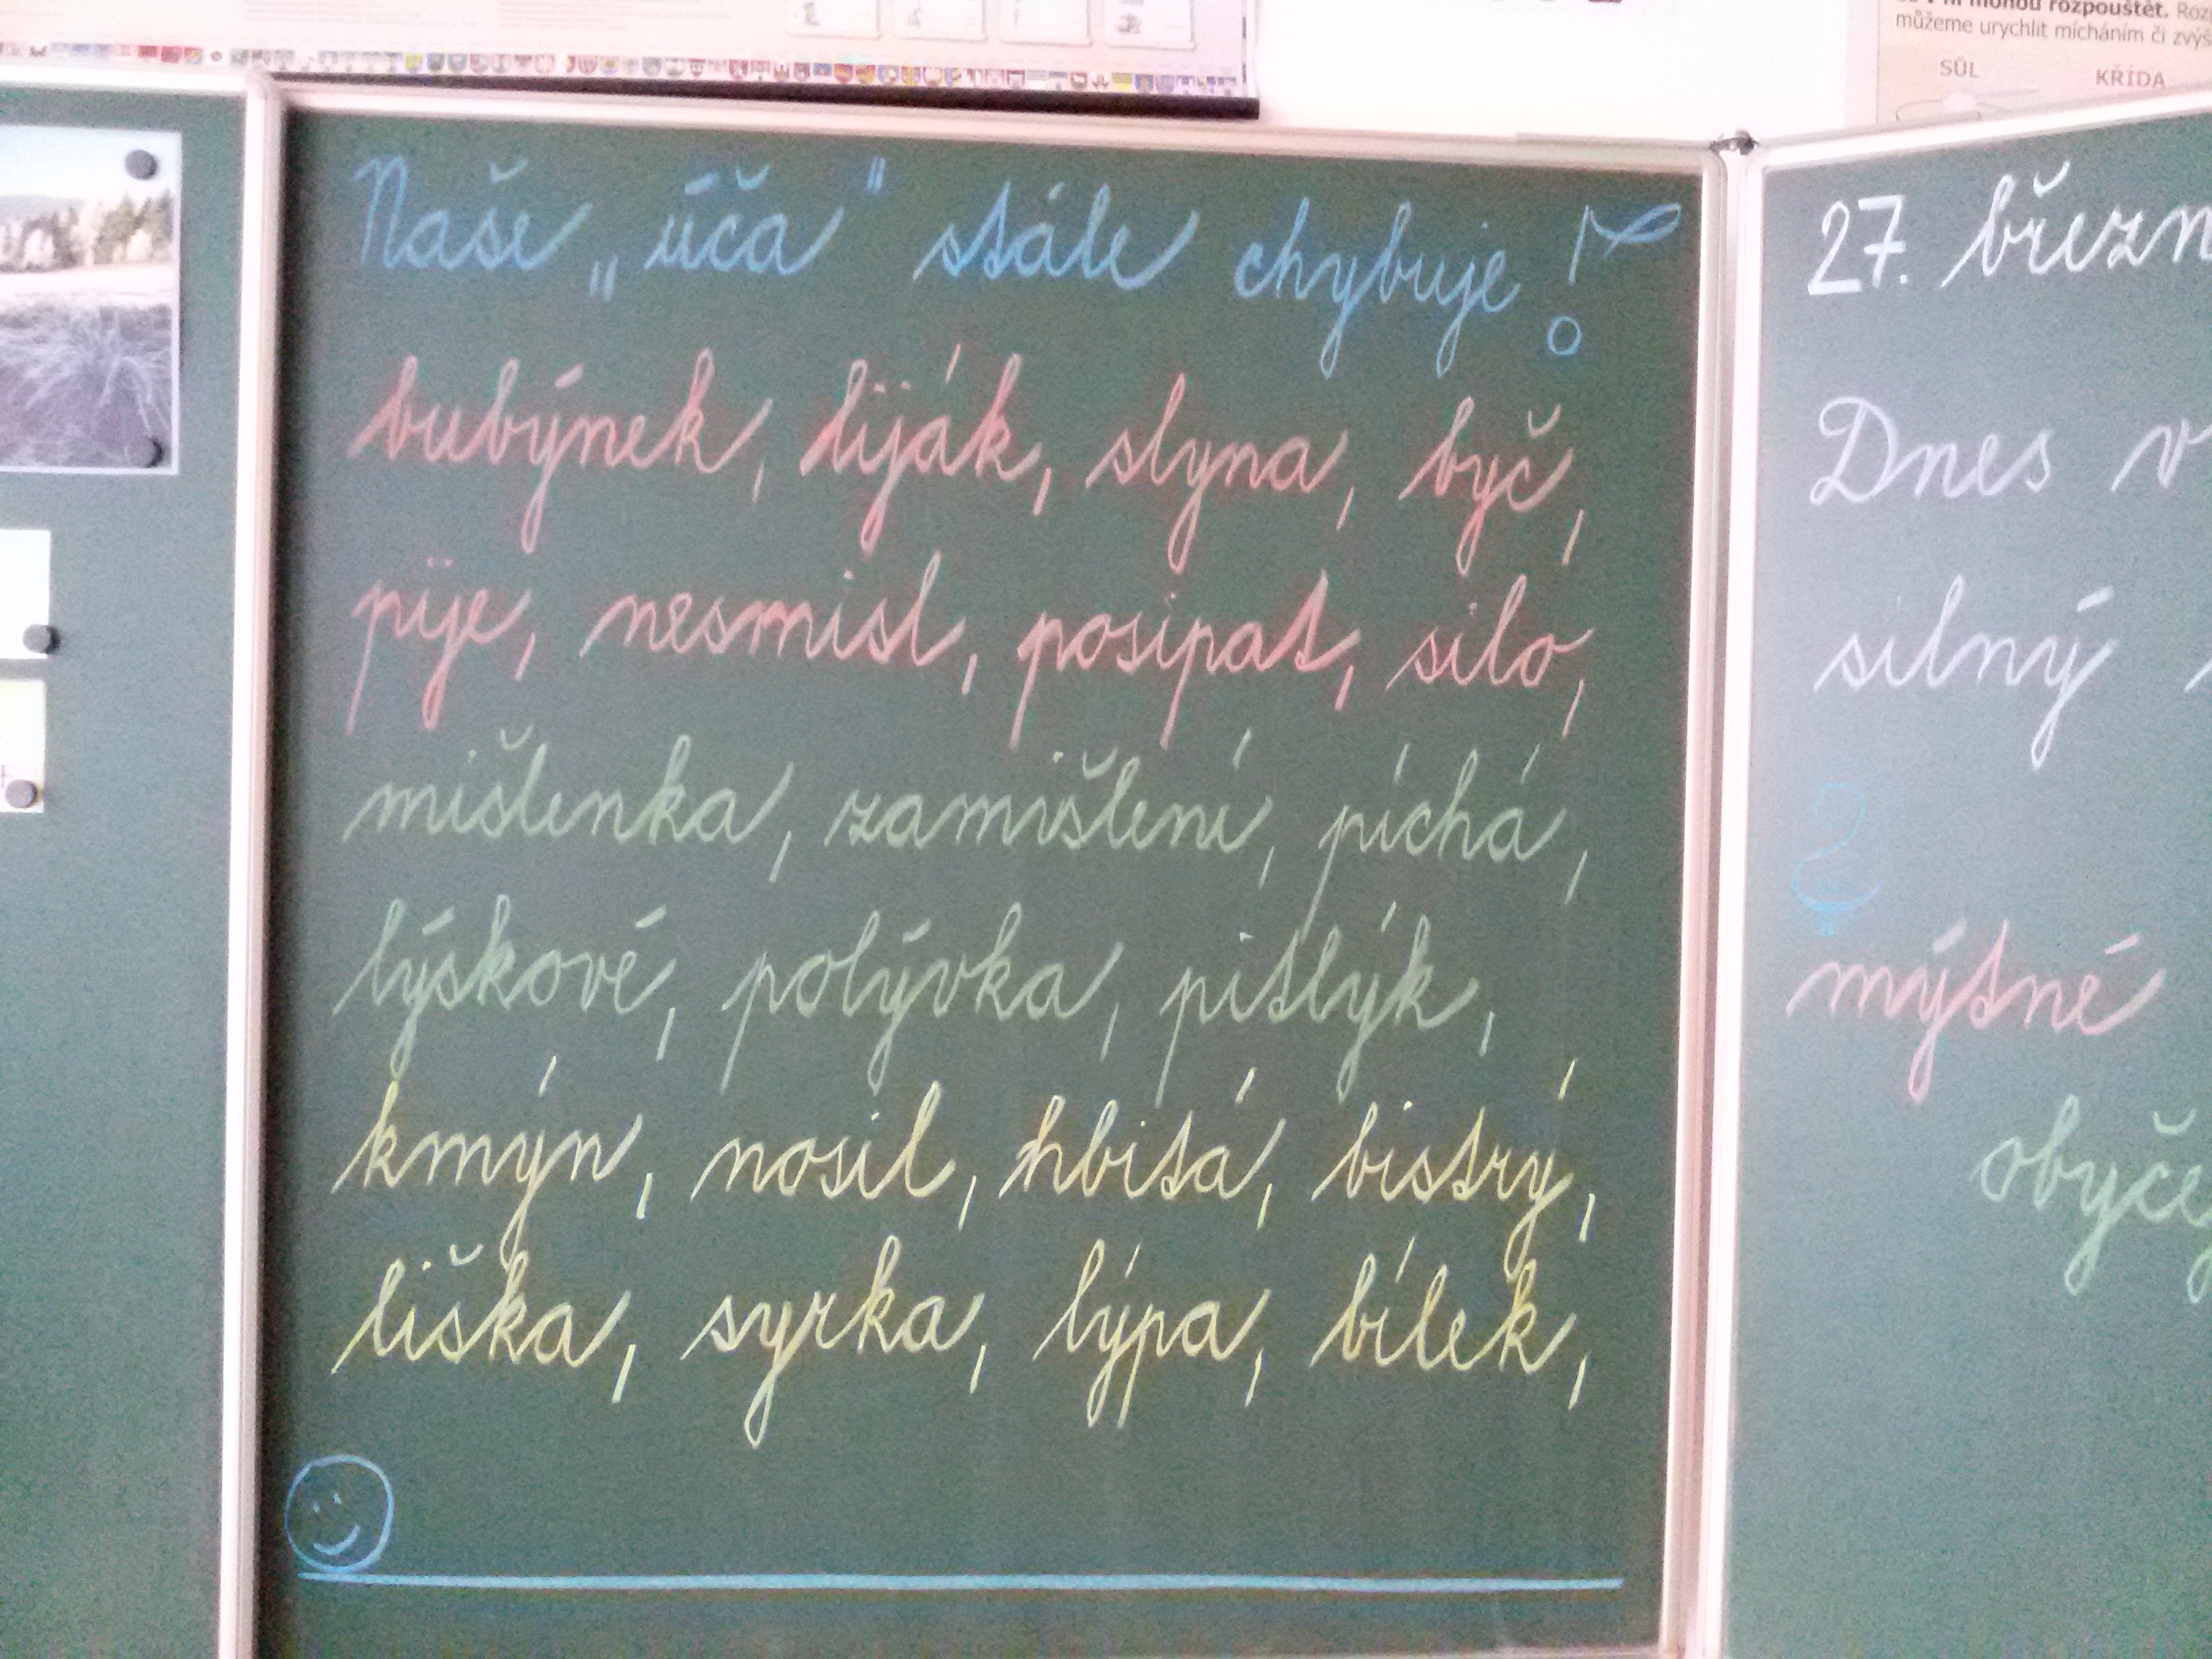 Naše „úča" stále chybuje!
bubýnek, liják, slyna, byč,
pije, nesmisl, posipat, silo,
mišlenka, zamišlení, píchá,
lýskové, polývka, pitlýk,
kmýn, nosil, hbitá, bistrý,
liška, syrka, lýpa, bílek,
27. březn
Dnes v
silný
mýtné
obyče
rozpouštět. Roz
můžeme urychlit mícháním či zvýš
SŮL KŘÍDA